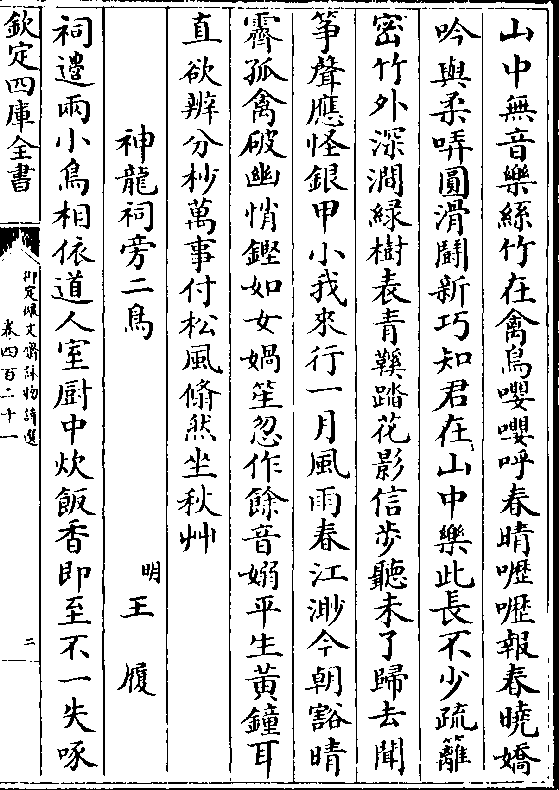 山中無音樂絲竹在禽鳥嚶嚶呼春晴嚦嚦報春曉嬌
吟與柔哢圓滑鬬新巧知君在山中樂此長不少疏籬
密竹外深澗緑樹表青鞵踏花影信歩聽未了歸去聞
筝聲應怪銀甲小我來行一月風雨春江渺今朝豁晴
霽孤禽破幽悄鏗如女媧笙忽作餘音嫋平生黄鐘耳
直欲辨分杪萬事付松風翛然坐秋艸
神龍祠旁二鳥
明王履
祠邉兩小鳥相依道人室厨中炊飯香即至不一失啄
欽定四庫全書
御定佩文齋詠物詩選
卷四百二十一
二